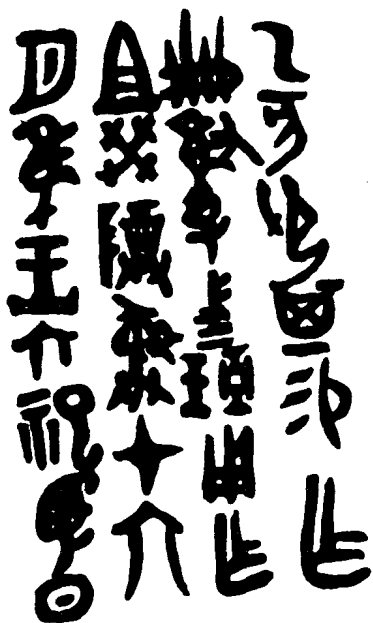 乙亥邲其易乍
冊㚔𡉚一珷一用乍
且癸隮彝才六
月隹王六祀羽日